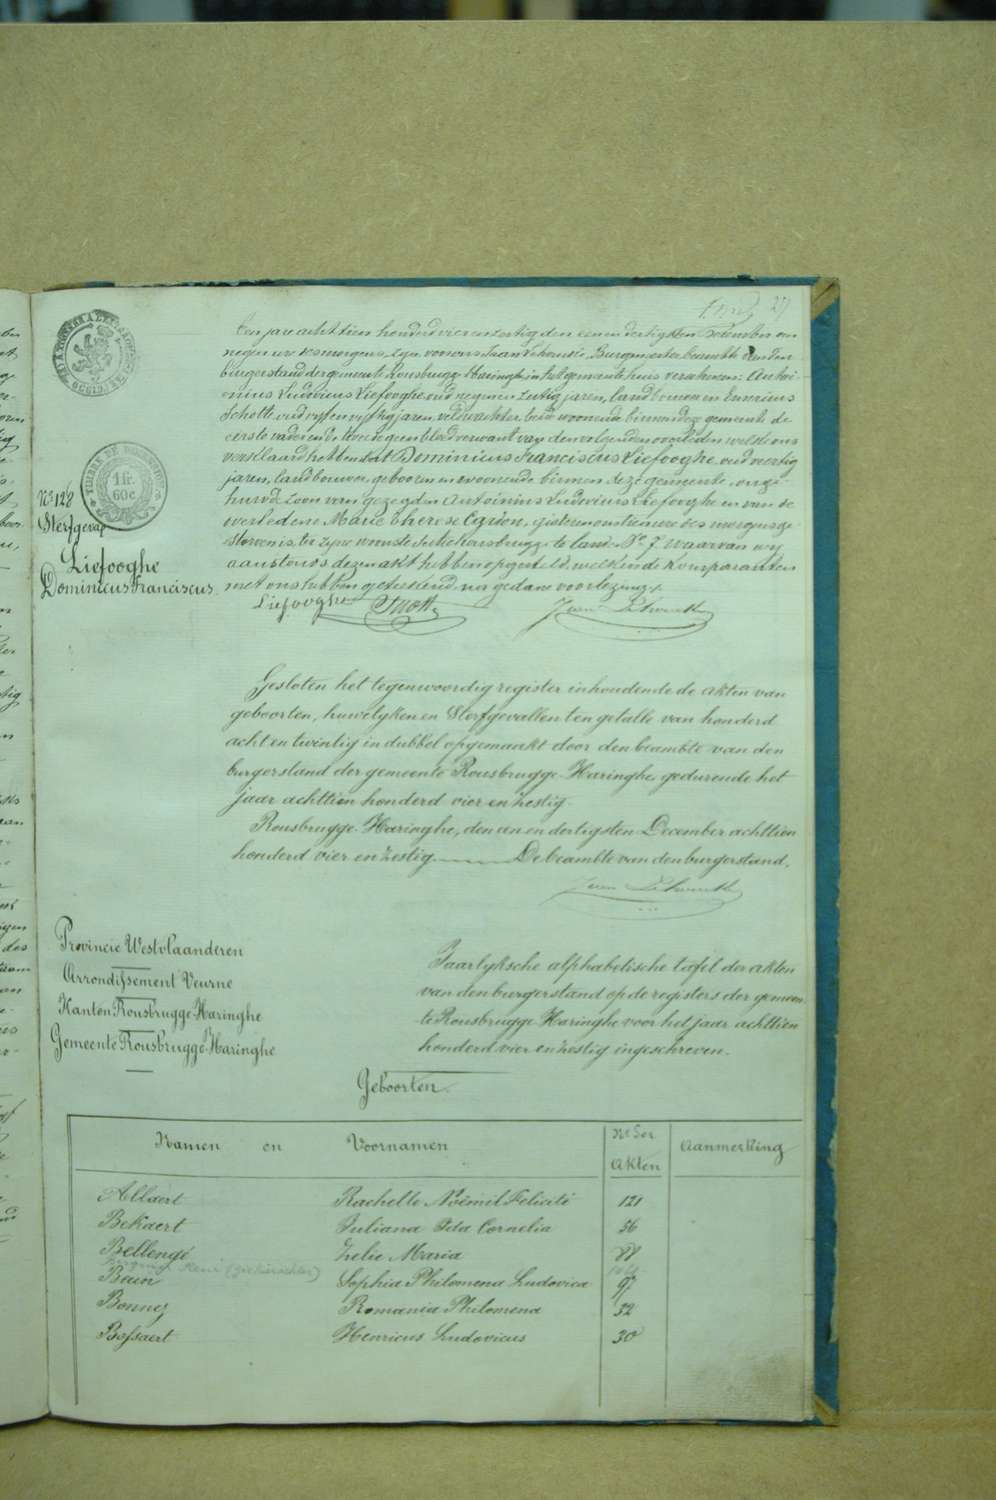 27
Een jare acht tien honderd vier en zestig den een en dertigsten December om
negen ure des morgens, zyn voor ons Burgmeester beambte van den
burgerstand der gemeente Rousbrugge Haringhe, in het gemeentehuis verschenen: Antoi-
nius Ludovicus Liefooghe, oud negen en zestig jaren, landbouwer en Henricus
Schotte, oud vyf en vyftig jaren, veldwachter, beide woonende binnen deze gemeente de
eerste vader en de tweede geen bloedverwant van den overledenen welke ons
verklaard hebben dat Dominicus Franciscus Liefooghe, oud veertig
jaren, landbouwer, geboren en woonende binnen deze gemeente, onge-
huwd, zoon van gezegden Antoinius Ludovicus Liefooghe en van de
overledene Marie Therese Cyrion, gisteren ten tien ure des morgens ge-
storven is, ter zyne woonste Rousbrugge te lande waarvan wy
aanstonds dezen akt hebben opgesteld, welk en de komparanten
met ons hebben geteekend, na gedane voorlezing.
N° 128
Sterfgeval
Liefooghe
Dominicus Franciscus.
TIMBRE DE DIMENSION
1 fr.
60 c
Liefooghe
Gesloten het tegenwoordig register inhoudende de akten van
geboorten, huwelyken en Sterfgevallen ten getalle van honderd
acht en twintig in dubbel opgemaakt door den beambte van den
burgerstand der gemeente Rousbrugge-Haringhe, gedurende het
jaar achttien honderd vier en zestig.
Rousbrugge-Haringhe, den een en dertigsten December achttien
honderd vier en zestig. De beambte van den burgerstand.
Provincie Westvlaanderen
Arrondissement Veurne
Kanton Rousbrugge-Haringhe
Gemeente Rousbrugge-Haringhe
Jaarlyksche alphabetische tafel der akten
van den burgerstand op de registers der gemeen-
te Rousbrugge-Haringhe voor het jaar achttien
honderd vier en zestig ingeschreven.
Geboorten.
Namen en Voornamen N° der Akten Aanmerking
Allaert Rachelle Noëmil Felicité 121
Bekaert Juliana Ida Cornelia 56
Bellengé Zelie Maria 88
Beun Sophia Philomena Ludovica 97
Bonnez Romania Philomena 32
Bossaert Henricus Ludovicus 30